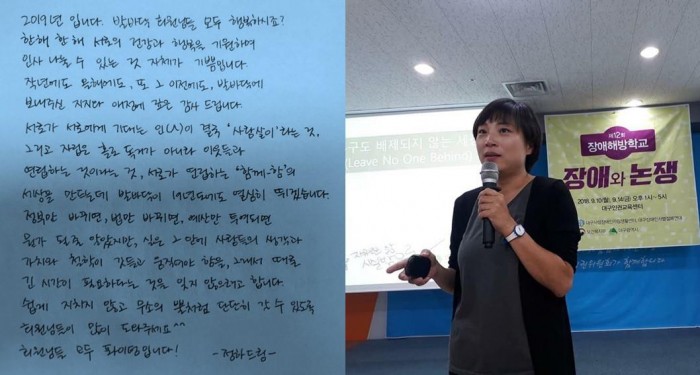 2019년 입니다. 밝바닥 회원님들 모두 행복하시죠?
한해 한해 서로의 건강과 행복을 기원하며
인사 나눌 수 있는 것 자체가 기쁨입니다.
작년에도 올해에도, 또 그 이전에도, 밝바닥에
보내주신 지지와 애정에 깊은 감사 드립니다.
서로가 서로에게 기대는 인(人)이 결국 '사람살이'라는 것,
그리고 자립은 홀로 독거가 아니라 이웃들과
연립하는 것이라는 것, 서로가 연립하는 '함께-함'의
세상을 만드는데 밝바닥이 19년도에도 열심히 뛰겠습니다.
정부만 바뀌면, 법만 바뀌면, 예산만 투여되면
뭔가 될 줄 알았지만, 실은 그 안에 사람들의 생각과
가치와 철학이 깃들고 움직여야 함을, 그래서 때로
긴 시간이 필요하다는 것을 잊지 않으려고 합니다.
쉽게 지치지 않고 무소의 뿔처럼 단단히 갈 수 있도록
회원님들이 많이 도와주세요^^
회원님들 모두 화이팅입니다!
-정하드림-
구도 배제되지 않는
(Leave No One Behind)
제12회
장애해방학교
장애와 논쟁
2018. 9.10(월), 9.14(금) 오후 1시~5시
대구인권교육센터
대구광역시